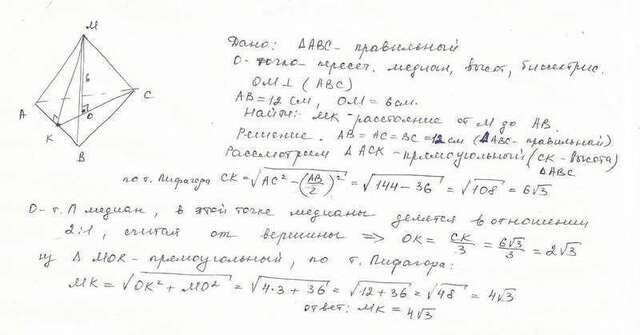 M
6
A
C
O
K
B
Дано: ΔABC - правильный
O - точка пересеч. медиан, высот, биссектрис.
OM ⊥ (ABC)
AB = 12 см, OM = 6 см.
Найти: MK - расстояние от M до AB.
Решение. AB = AC = BC = 12 см (ΔABC - правильный)
Рассмотрим ΔACK - прямоугольный (CK - высота)
ΔABC
по т. Пифагора CK = √(AC² - (AB/2)²) = √(144 - 36) = √108 = 6√3
O - т. П медиан, в этой точке медианы делятся в отношении
2:1, считая от вершины => OK = CK/3 = 6√3/3 = 2√3
из ΔMOK - прямоугольный, по т. Пифагора:
MK = √(OK² + MO²) = √(4·3 + 36) = √(12 + 36) = √48 = 4√3
ответ: MK = 4√3